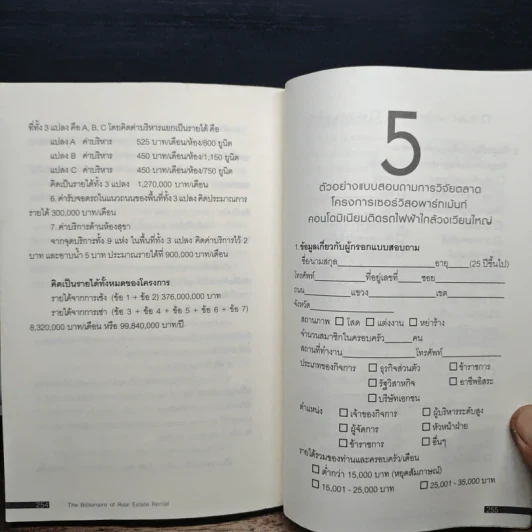 ที่ทั้ง 3 แปลง คือ A, B, C โดยคิดค่าบริหารแยกเป็นรายได้ คือ
แปลง A ค่าบริหาร 525 บาท/เดือน/ห้อง/800 ยูนิต
แปลง B ค่าบริหาร 450 บาท/เดือน/ห้อง/1,150 ยูนิต
แปลง C ค่าบริหาร 450 บาท/เดือน/ห้อง/750 ยูนิต
คิดเป็นรายได้ทั้ง 3 แปลง 1,270,000 บาท/เดือน
6. ค่ารับจอดรถในแนวถนนของพื้นที่ทั้ง 3 แปลง คิดประมาณการ
รายได้ 300,000 บาท/เดือน
7. ค่าบริการด้านห้องสุขา
จากจุดบริการทั้ง 9 แห่ง ในพื้นที่ทั้ง 3 แปลง คิดค่าบริการไว้ 2
บาท และอาบน้ำ 5 บาท ประมาณรายได้ที่ 900,000 บาท/เดือน
คิดเป็นรายได้ทั้งหมดของโครงการ
รายได้จากการเซ้ง (ข้อ 1 + ข้อ 2) 376,000,000 บาท
รายได้จากการเช่า (ข้อ 3 + ข้อ 4 + ข้อ 5 + ข้อ 6 + ข้อ 7)
8,320,000 บาท/เดือน หรือ 99,840,000 บาท/ปี
254 The Billionaire of Real Estate Rental
5
ตัวอย่างแบบสอบถามการวิจัยตลาด
โครงการเซอร์วิสอพาร์ทเม้นท์
คอนโดมิเนียมติดรถไฟฟ้าใกล้วงเวียนใหญ่
1. ข้อมูลเกี่ยวกับผู้กรอกแบบสอบถาม
ชื่อนามสกุล อายุ (25 ปีขึ้นไป)
โทรศัพท์ ที่อยู่เลขที่ ซอย
ถนน แขวง เขต
จังหวัด
สถานภาพ โสด แต่งงาน หย่าร้าง
จำนวนสมาชิกในครอบครัว คน
สถานที่ทำงาน โทรศัพท์
ประเภทของกิจการ ธุรกิจส่วนตัว ข้าราชการ
รัฐวิสาหกิจ อาชีพอิสระ
บริษัทเอกชน
ตำแหน่ง เจ้าของกิจการ ผู้บริหารระดับสูง
ผู้จัดการ หัวหน้าฝ่าย
ข้าราชการ อื่นๆ
รายได้รวมของท่านและครอบครัว/เดือน
ต่ำกว่า 15,000 บาท (หยุดสัมภาษณ์)
15,001 - 25,000 บาท 25,001 - 35,000 บาท
255